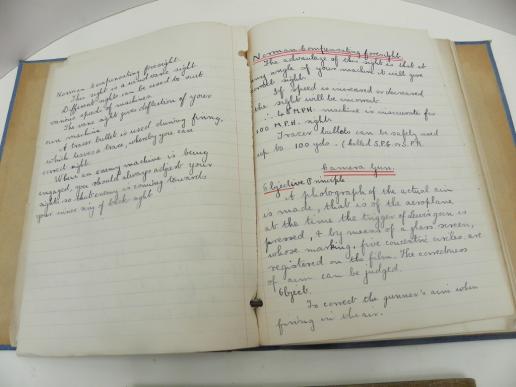 Norman Compensating foresight.
This sight is a wind vane sight.
Different sights can be used to suit
various speeds of machines.
The vane sight gives deflection of your
own machine.
A tracer bullet is used during firing,
which leaves a trace, whereby you can
correct sight.
When an enemy machine is being
engaged, you should always adjust your
sights, so that enemy is coming towards
your inner ring of back sight
Norman Compensating foresight.
The advantage of this sight is that at
any angle of your machine it will give
correct sight.
If speed is increased or decreased
the sight will be incorrect
M.P.H. machine is inaccurate for
100 M.P.H. sight.
Tracer bullets can be safely used
up to 100 yds. (
Camera Gun.
Objective Principle
A photograph of the actual aim
is made, that is of the aeroplane
at the time the trigger of Lewis gun is
pressed, & by means of a glass screen,
whose marking, five concentric circles are
registered on the film. The correctness
of aim can be judged.
Object.
To correct the gunner's aim when
firing in the air.